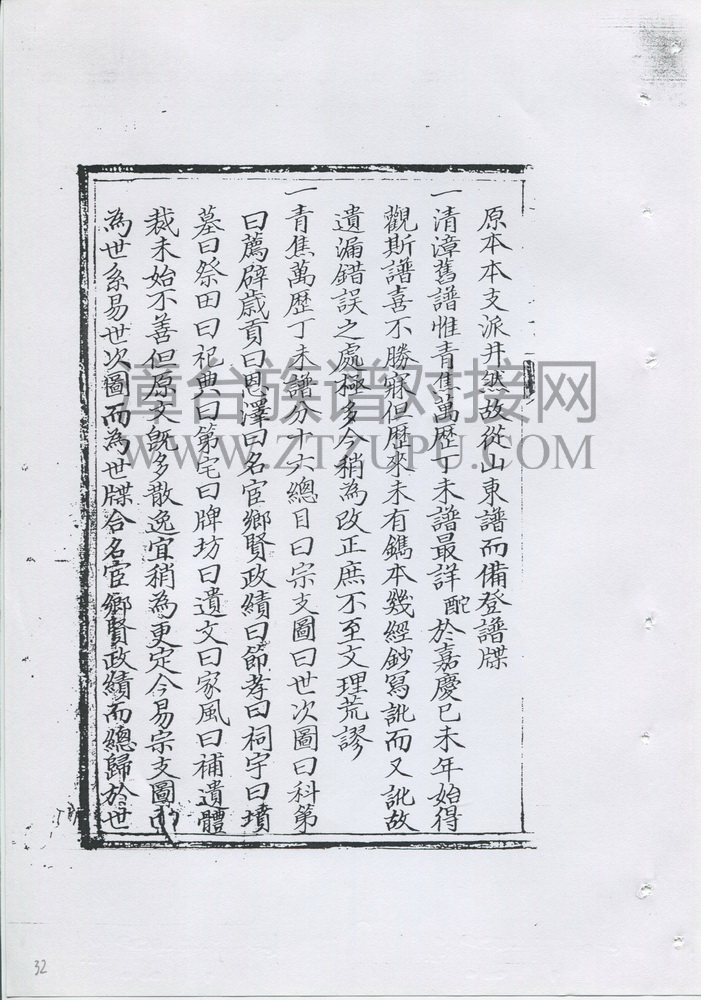 原本本支派井然故從山東譜而備登譜牒
一清漳舊譜惟青焦萬歷丁未譜最詳酡於嘉慶已未年始得
觀斯譜喜不勝寐但歷來未有鐫本幾經鈔寫訛而又訛故
遺漏錯誤之處極多今稍為改正庶不至文理荒謬
一青焦萬歷丁未譜分十六總目曰宗支圖曰世次圖曰科第
曰薦辟歲貢曰恩澤曰名宦鄉賢政績曰節孝曰祠宇曰墳
墓曰祭田曰祀典曰第宅曰牌坊曰遺文曰家風曰補遺體
裁未始不善但原文旣多散逸宜稍為更定今易宗支圖而
為世系易世次圖而為世牒合名宦鄉賢政績而總歸於世
漳台族谱对接网
WWW.ZTZUPU.COM
32